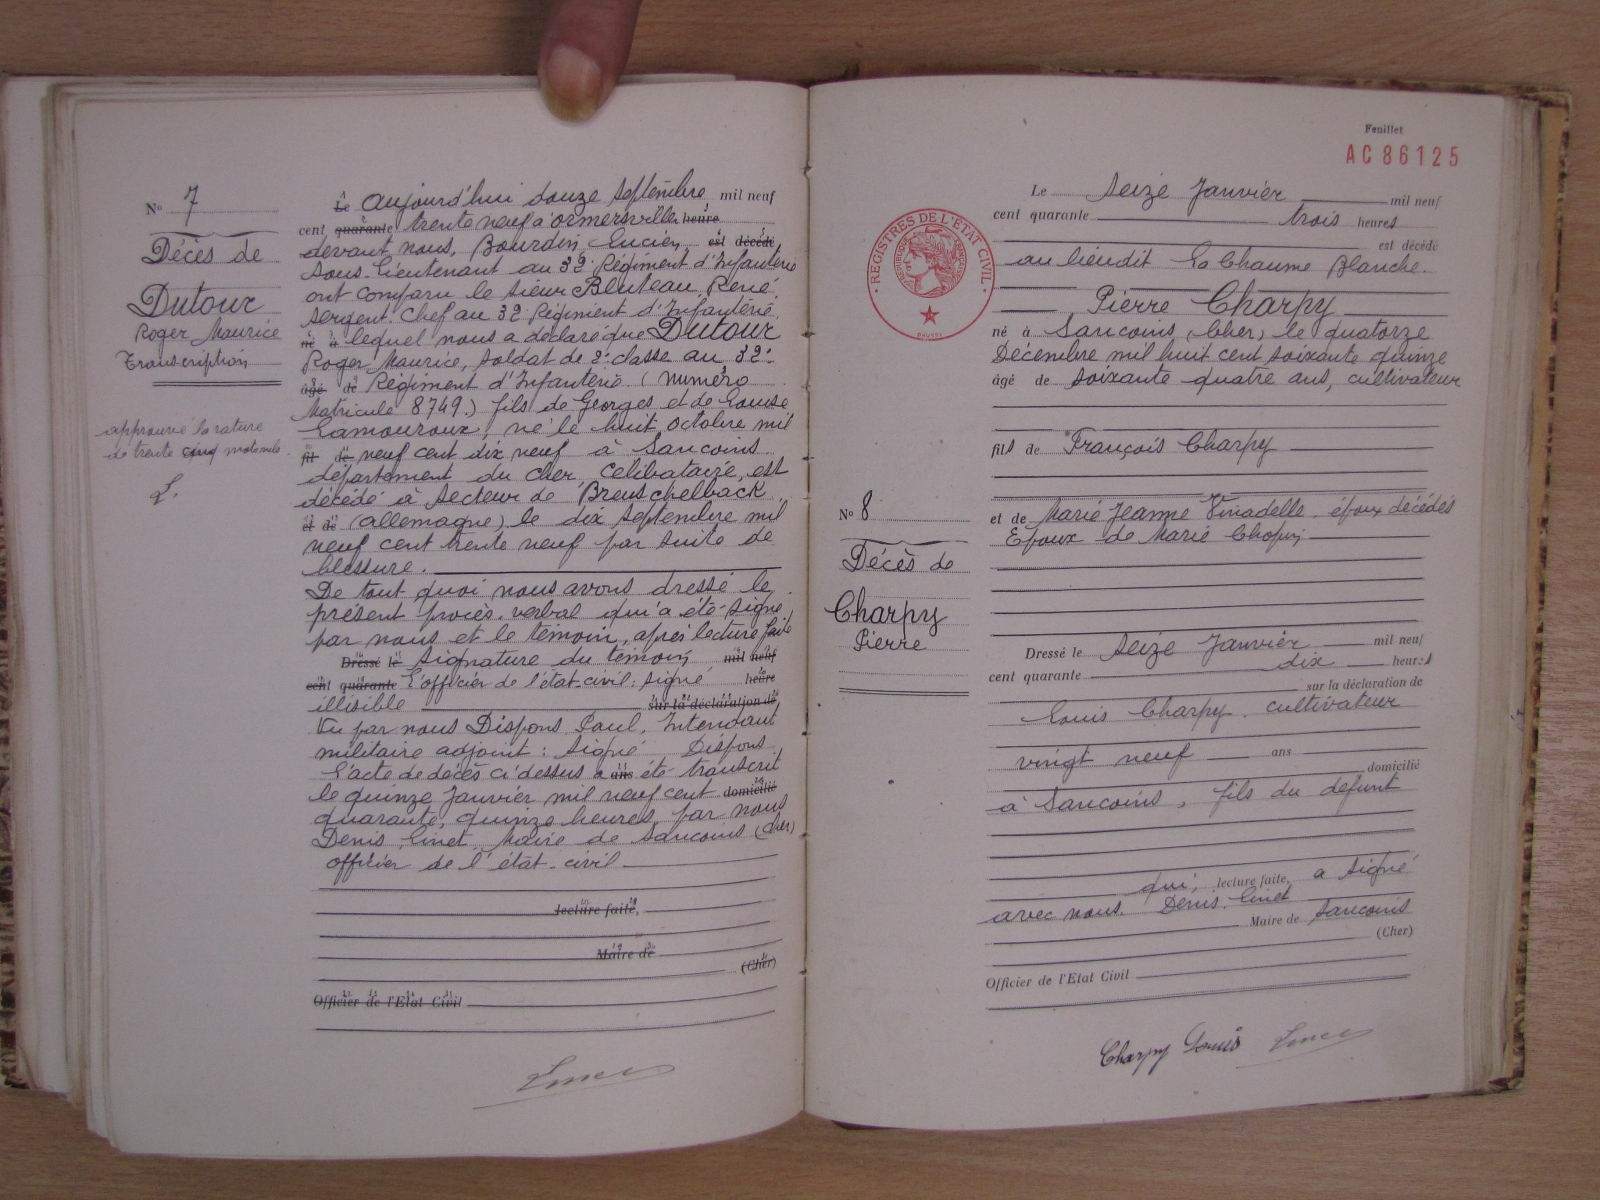 N° 7
Décès de
Dutour
Roger Maurice
Transcription
approuvé la rature
de trente cinq mots nuls
L.
Le aujourd'hui douze Septembre mil neuf
cent quarante trente neuf à Ormersviller heure
devant nous, Bourdin Lucien est décédé
Sous-Lieutenant au 32e Régiment d'Infanterie
ont comparu le sieur Bluteau René
Sergent-Chef au 32e Régiment d'Infanterie
né à lequel nous a déclaré que Dutour
Roger Maurice, soldat de 2e classe au 32e
âgé de Régiment d'Infanterie (numéro
Matricule 8749.) fils de Georges et de Louise
Lamouroux, né le huit octobre mil
fil de neuf cent dix neuf à Sancoins
département du Cher, célibataire, est
décédé à Secteur de Breuschelback
et de (Allemagne) le dix Septembre mil
neuf cent trente neuf par suite de
blessure.
De tout quoi nous avons dressé le
présent procès-verbal qui a été signé
par nous et le témoin, après lecture faite
Dressé le Signature du témoin mil neuf
cent quarante L'officier de l'état-civil: signé heure
illisible sur la déclaration de
Vu par nous Dispons Paul, Intendant
militaire adjoint: signé Dispons
L'acte de décès ci-dessus a ans été transcrit
le quinze Janvier mil neuf cent domicilié
quarante, quinze heures, par nous
Denis Linet Maire de Sancoins (Cher)
officier de l'état-civil
lecture faite,
Maire de
(Cher)
Officier de l'Etat Civil
Feuillet
AC 86125
REGISTRES DE L'ETAT CIVIL
REPUBLIQUE FRANÇAISE
N° 8
Décès de
Charpy
Pierre
Le Seize Janvier mil neuf
cent quarante trois heures
est décédé
au lieudit La Chaume Blanche
Pierre Charpy
né à Sancoins (Cher) le quatorze
Décembre mil huit cent soixante quinze
âgé de soixante quatre ans, cultivateur
fils de François Charpy
et de Marie Jeanne Vinadelle époux décédés
Epoux de Marie Chopin
Dressé le Seize Janvier mil neuf
cent quarante dix heures
sur la déclaration de
Louis Charpy cultivateur
vingt neuf ans
domicilié
à Sancoins, fils du défunt
qui, lecture faite, a signé
avec nous. Denis Linet
Maire de Sancoins
(Cher)
Officier de l'Etat Civil
Charpy Louis Linet